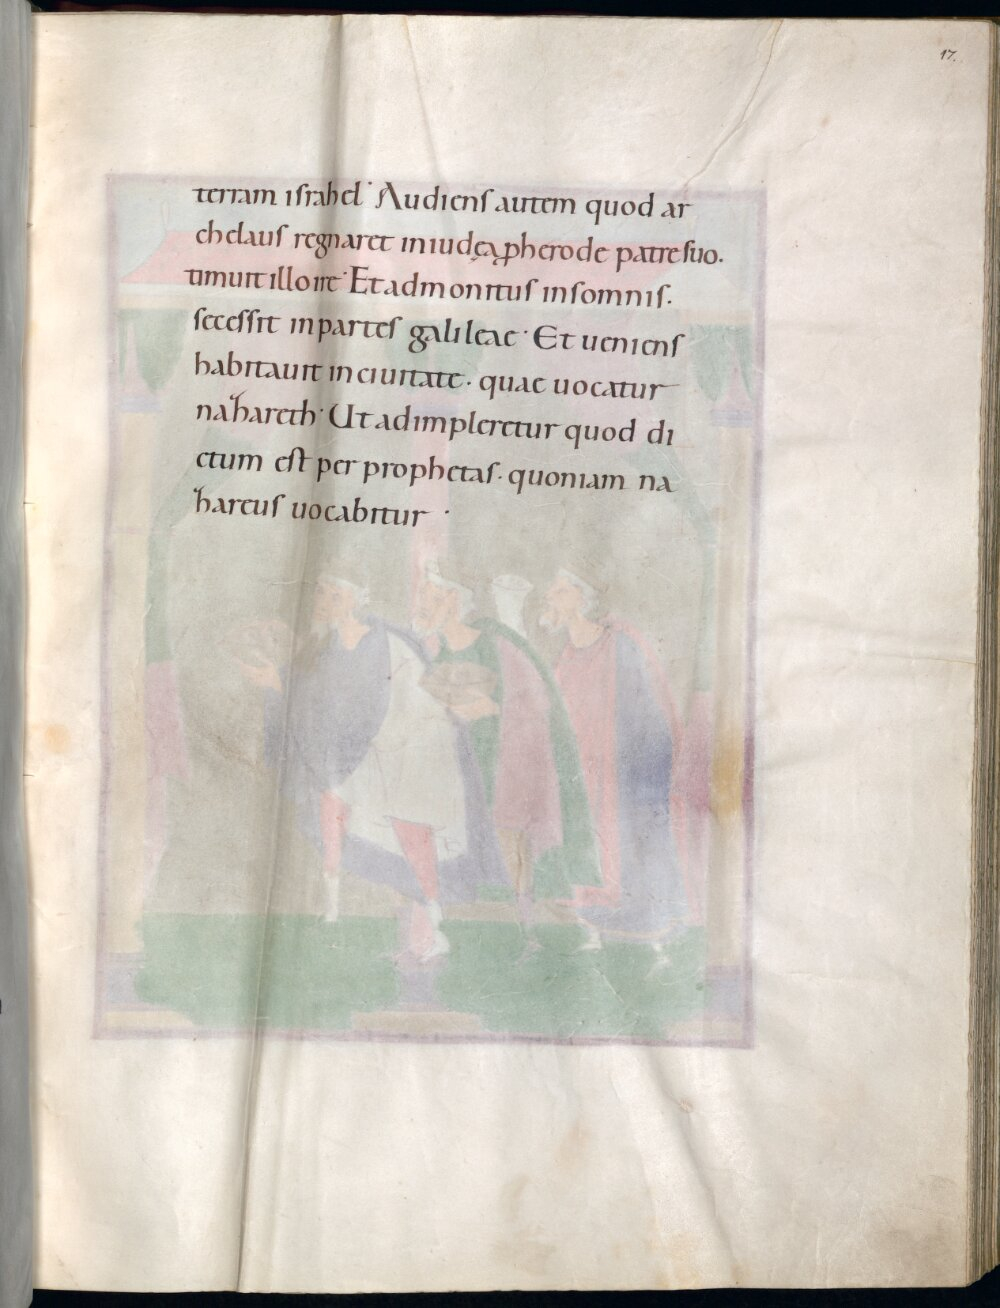 17.
terram israhel· Audiens autem quod ar
chelaus regnaret iniudęa p herode patre suo.
timuit illo ire· Et admonitus insomnis.
secessit inpartes galileae· Et ueniens
habitauit inciuitate· quae uocatur
nazareth· Ut adimpleretur quod di
ctum est per prophetas· quoniam na
zareus uocabitur ·